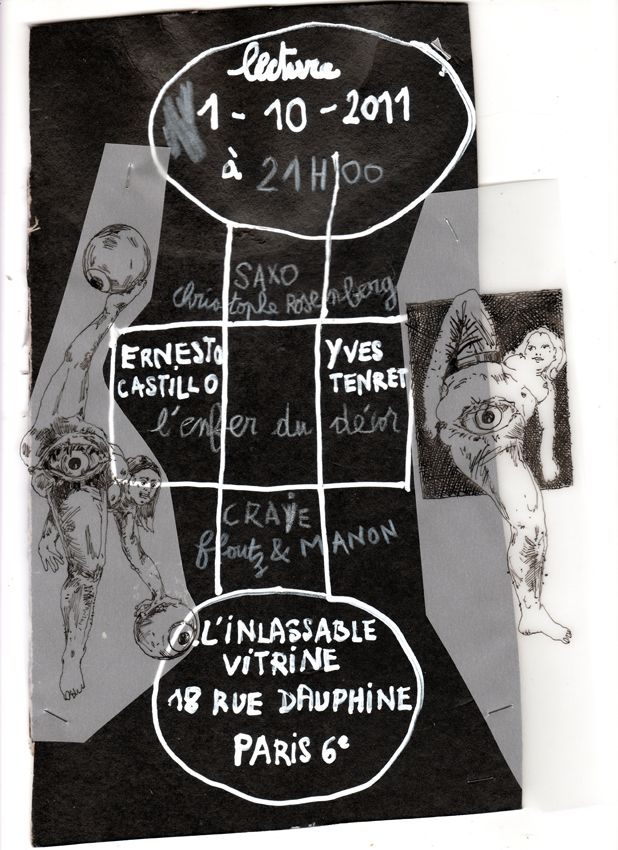 lecture
1-10-2011
à 21H00
SAXO
Christophe Rosenberg
ERNESTO
CASTILLO
YVES
TENRET
l'enfer du décor
CRAIE
ffoutz & MANON
L'INLASSABLE
VITRINE
18 RUE DAUPHINE
PARIS 6e